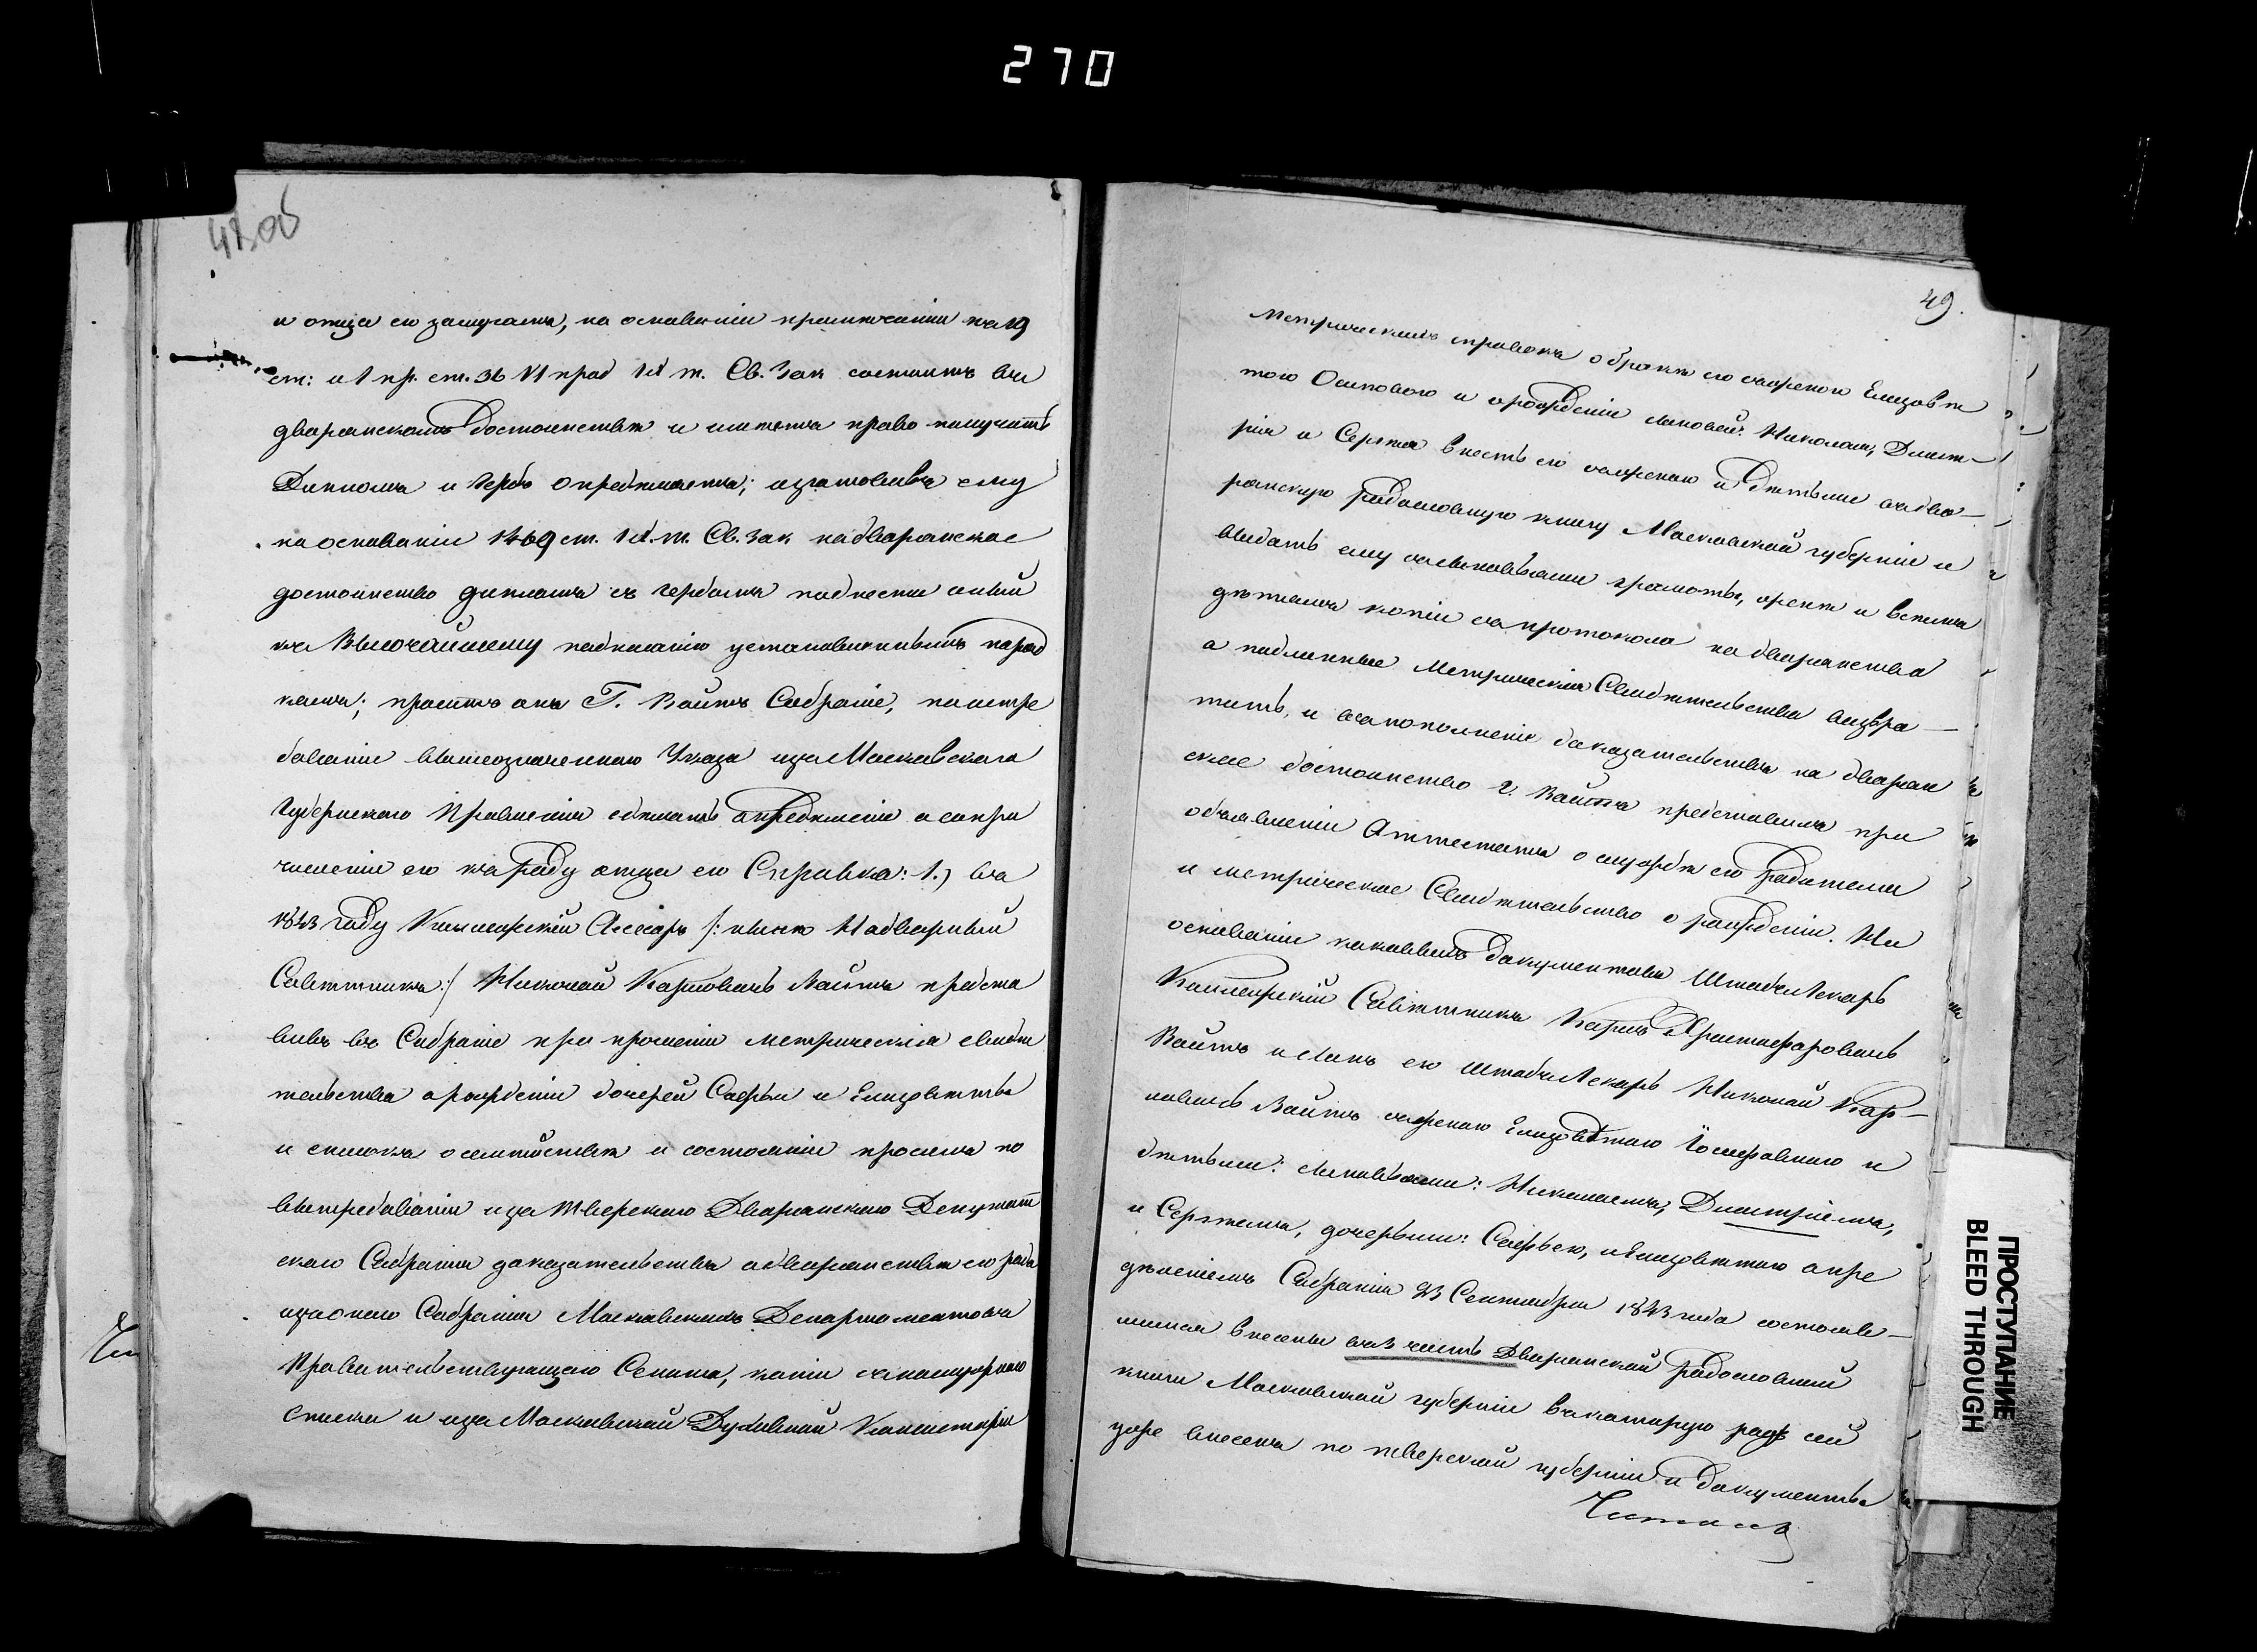 270
48 об
и отца его заслугамъ, на основаніи примѣчанія къ 19
ст: и 1 пр. ст. 36 VI прод IX т. Св. Зак состоитъ въ
дворянскомъ достоинствѣ и имѣетъ право получить
Дипломъ и Гербъ опредѣляетъ; изготовивъ ему
на основаніи 1469 ст. IX. т. Св. Зак на дворянское
достоинство дипломъ съ гербомъ поднести оный
къ Высочайшему подписанію установленнымъ поряд
комъ; проситъ онъ Г. Вайтъ Собраніе, по истре
бованіи вышеозначеннаго Указа изъ Московскаго
Губернскаго Правленія сдѣлать опредѣленіе о сопри
численіи его къ роду отца его Справка: 1.) въ
1843 году Коллежскій Ассесоръ /: нынѣ Надворный
Совѣтникъ :/ Николай Карловичъ Вайтъ предста
вивъ въ Собраніе при прошеніи метрическія свидѣ
тельства о рожденіи дочерей Софьи и Елизаветы
и списокъ о семѣйствѣ и состояніи просилъ по
вытребованіи изъ Тверскаго Дворянскаго Депутат
скаго Собранія доказательствъ о дворянствѣ его рода
изъ онаго Собранія Московскихъ Департаментовъ
Правительствующаго Сената, копіи съ послужнаго
списка и изъ Московской Духовной Консисторіи
49.
Метрическихъ справокъ о бракѣ его съ женою Елизавѣ
тою Осиповою и о рожденіи сыновей: Николая, Дмит-
рія и Сергѣя внесть его съ женою и дѣтьми въ дво-
рянскую родословную книгу Московской губерніи и
выдать ему съ сыновьями грамоты, женѣ и всѣмъ
дѣтямъ копіи съ протокола на дворянство
а подлинные Метрическія Свидѣтельства возвра-
тить, и въ пополненіе доказательствъ на дворян
ское достоинство Г. Вайтъ представилъ при
объявленіи Аттестатъ о службѣ его родителя
и метрическое Свидѣтельство о рожденіи. На
основаніи каковыхъ документовъ Штабъ Лекарь
Коллежскій Совѣтникъ Карлъ Христофоровичъ
Вайтъ и сынъ его Штабъ Лекарь Николай Кар-
ловичъ Вайтъ съ женою Елизаветою Іосифовною и
дѣтьми: сыновьями: Николаемъ, Дмитріемъ,
и Сергѣемъ, дочерьми: Софьею, и Елизаветою опре
дѣленіемъ Собранія 23 Сентября 1843 года состояв-
шимся внесены въ 3 часть Дворянской родословной
книги Московской губерніи въ которую родъ сей
уже внесенъ по Тверской губерніи и документы
Читалъ
ПРОСТУПАНИЕ
BLEED THROUGH